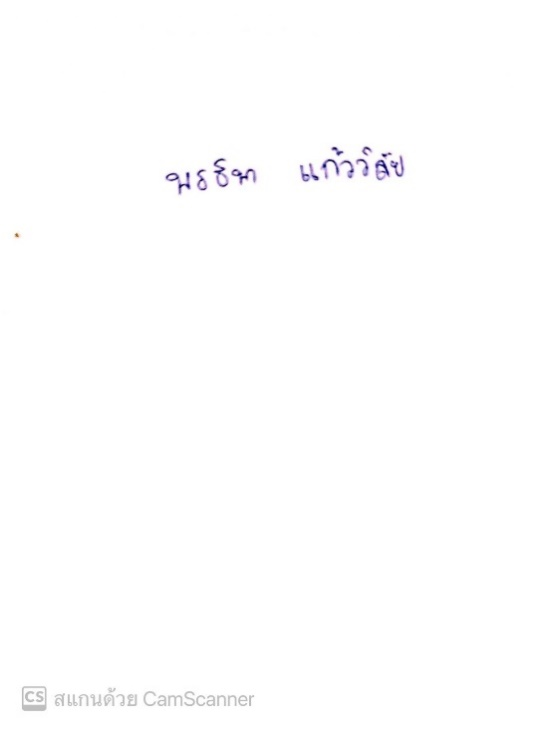 พรธิพา แก้ววิลัย
CS สแกนด้วย CamScanner